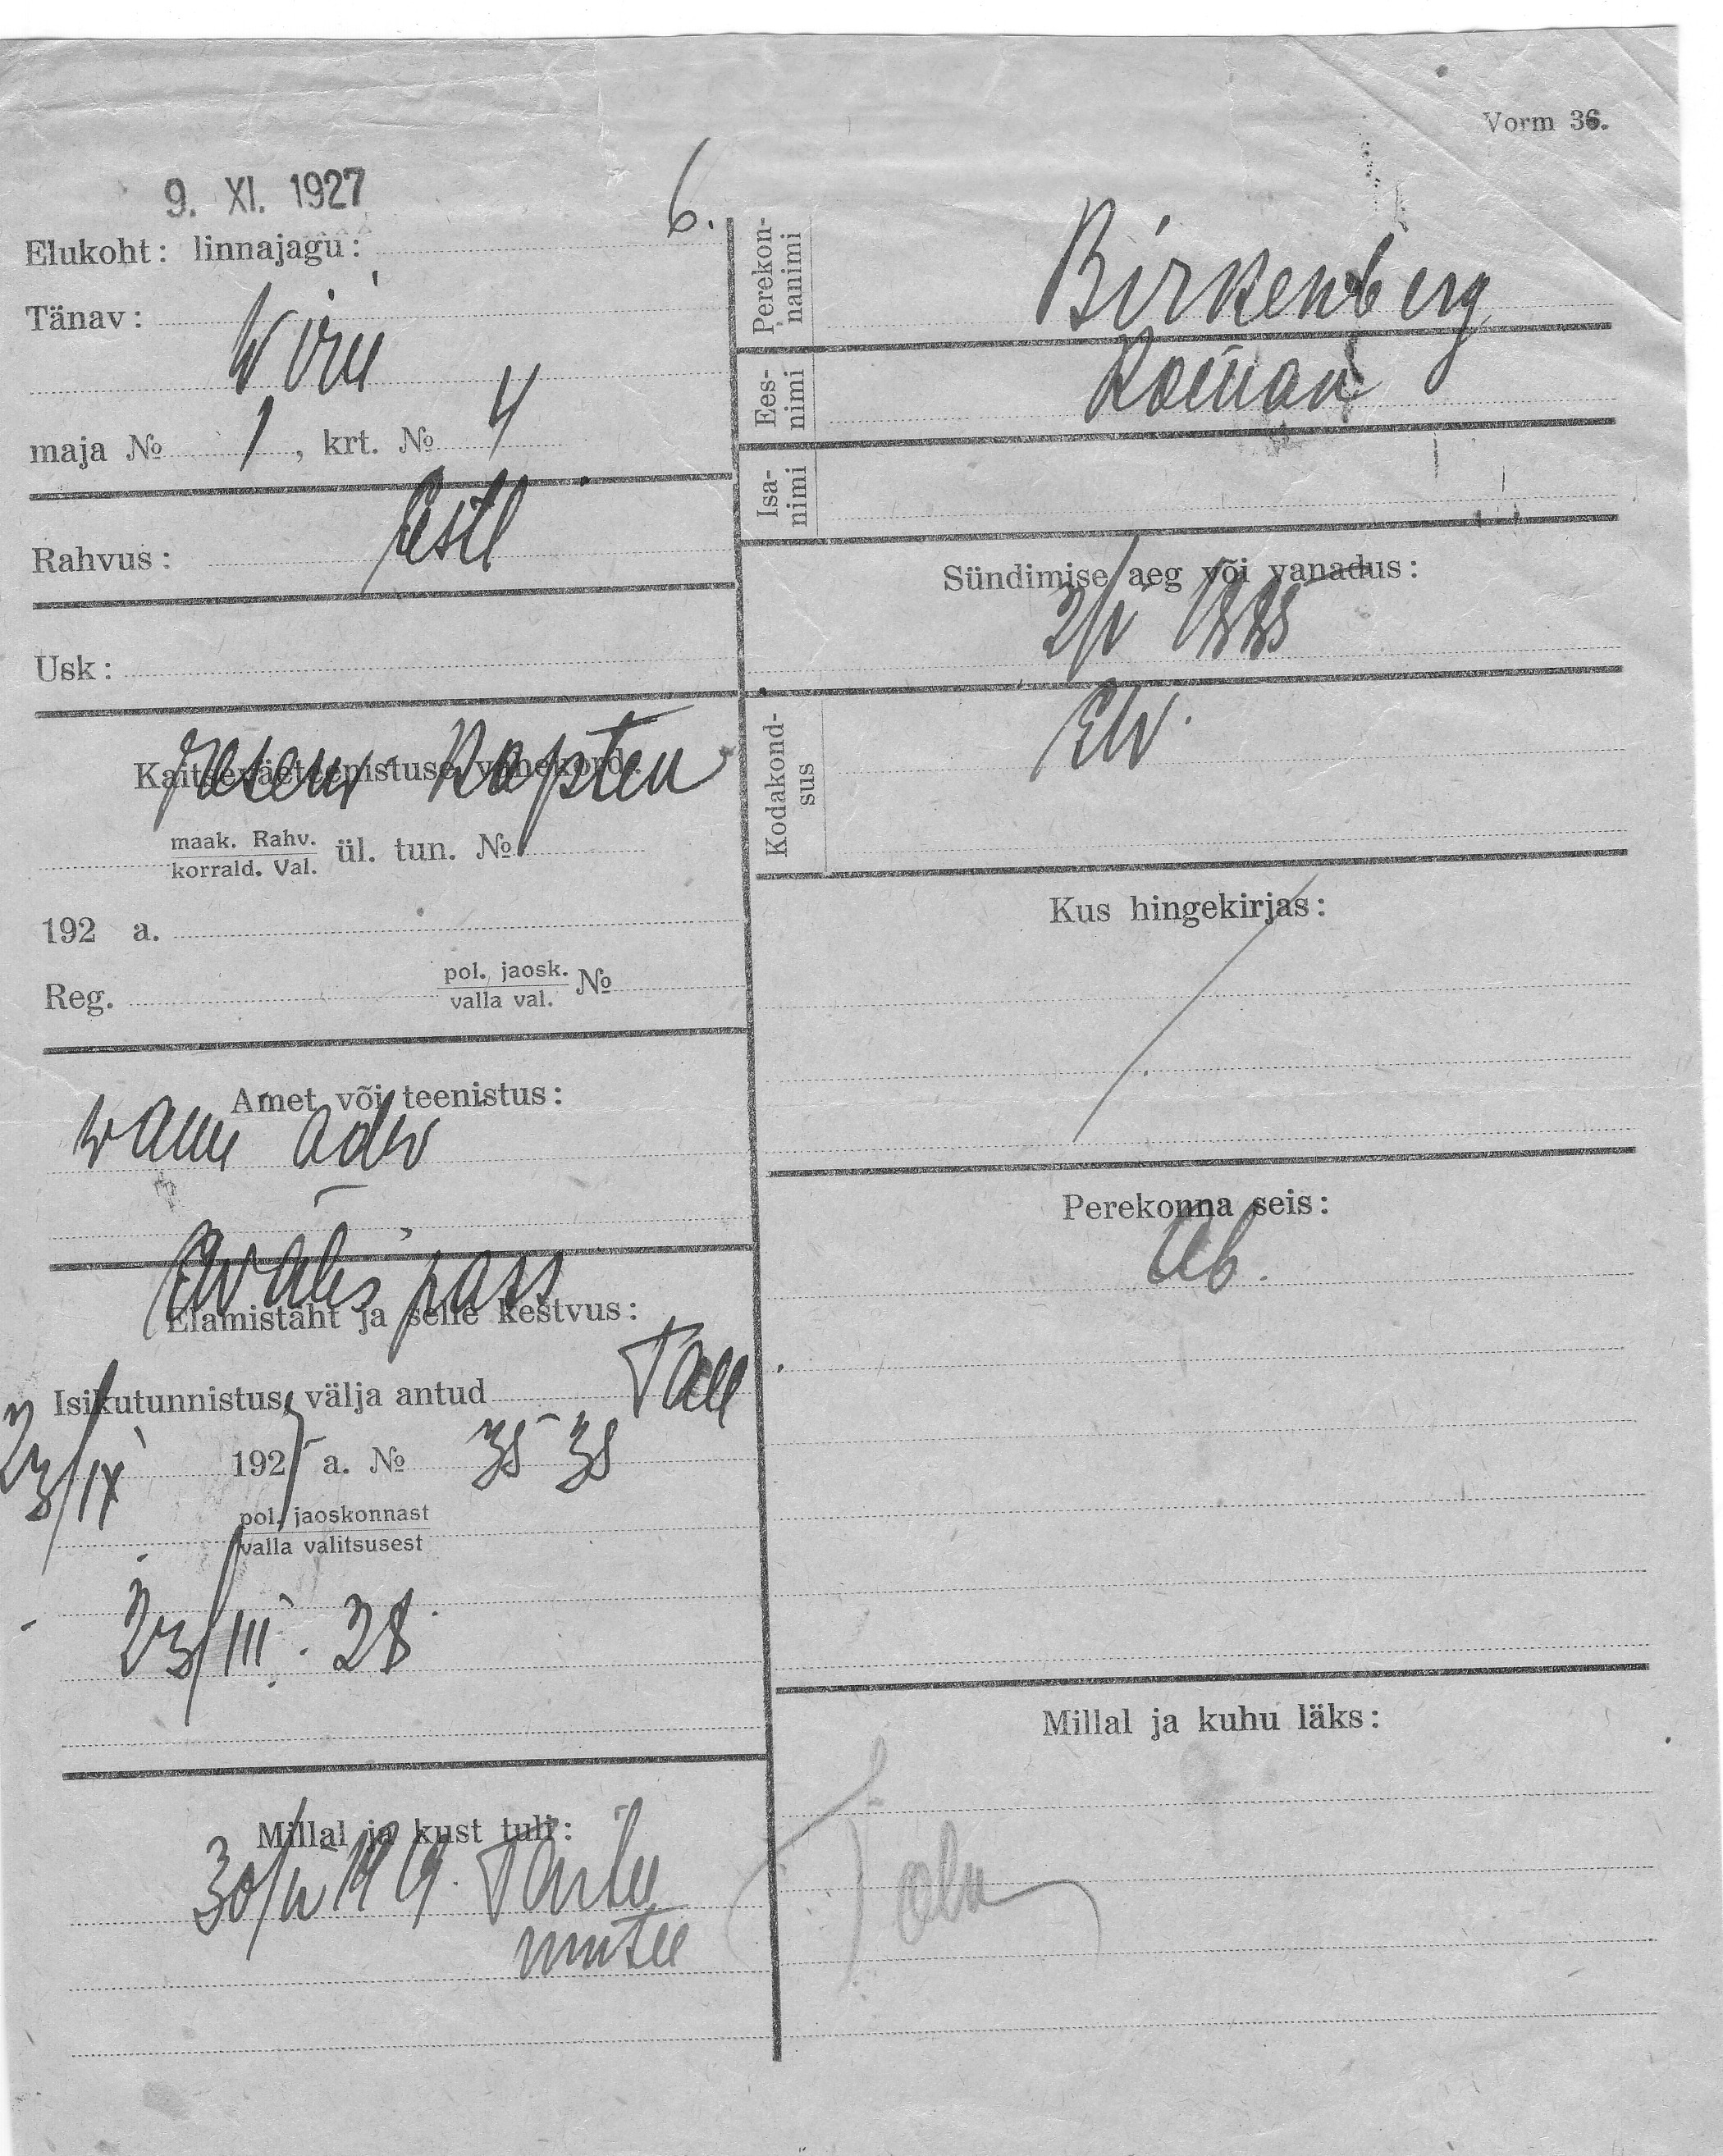 Vorm 36.
9. XI. 1927
6.
Elukoht: linnajagu:
Tänav:
Wiru
maja № 1, krt. № 4
Rahvus: Estl
Usk:
Kaitseväeteenistuse vahekord:
Reserv Kapten
maak. Rahv.
korrald. Val. ül. tun. №
192 a.
Reg. pol. jaosk.
valla val. №
Amet või teenistus:
wann adw
Elamistäht ja selle kestvus:
pass
Isikutunnistus, välja antud Tall
23/IX 1927 a. № 3538
pol. jaoskonnast
valla valitsusest
23/III. 28
Millal ja kust tuli:
Tartu
mntee
Perekon-
nanimi
Birkenberg
Ees-
nimi
Roman
Isa-
nimi
Sündimise aeg või vanadus:
1885
Kodakond-
sus
EW.
Kus hingekirjas:
Perekonna seis:
Ab.
Millal ja kuhu läks: